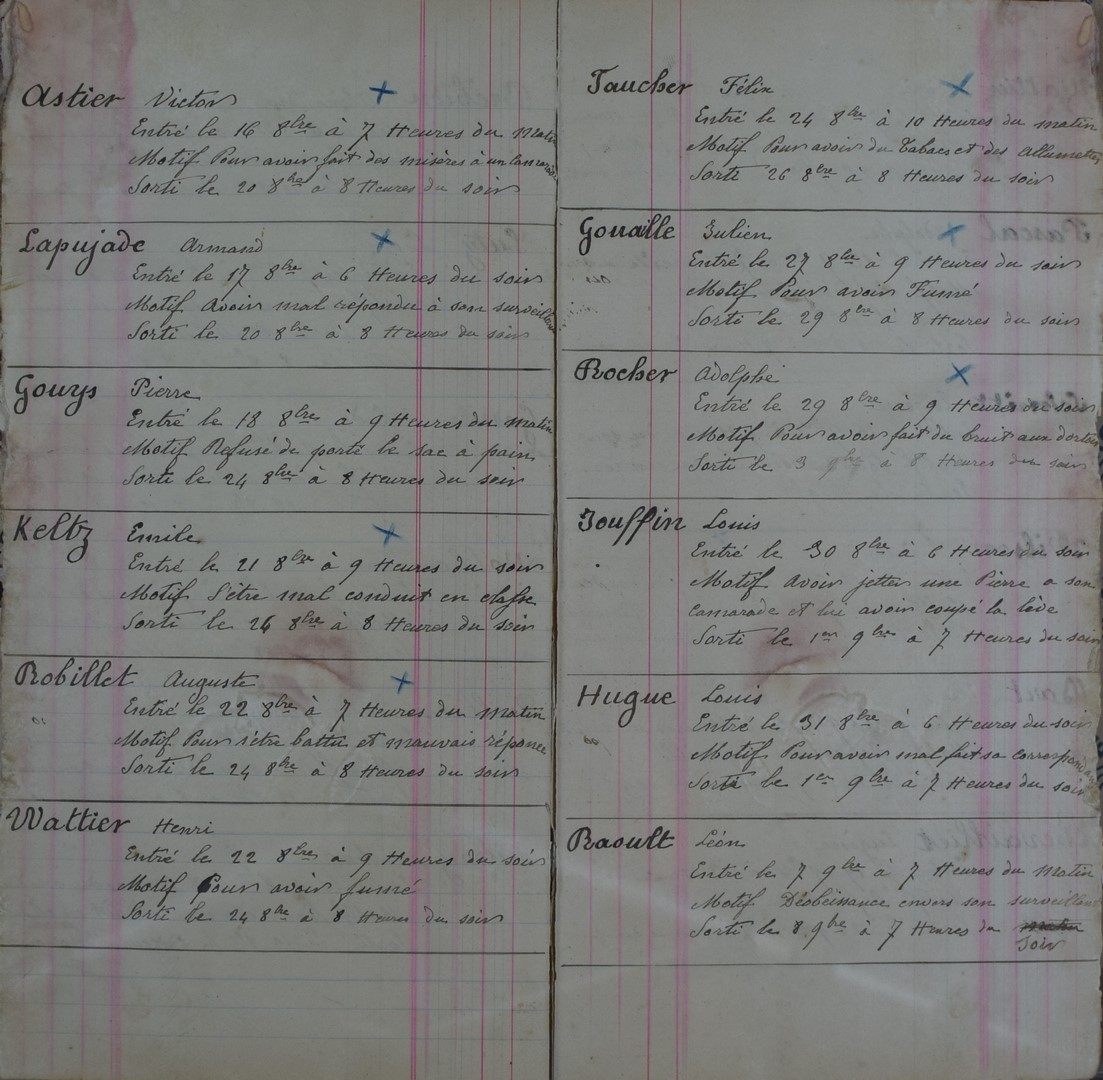 Astier Victor +
Entré le 16 8bre à 7 Heures du matin
Motif Pour avoir fait des misères à un camarade
Sorti le 20 8bre à 8 Heures du soir
Lapujade Armand +
Entré le 17 8bre à 6 Heures du soir
Motif Avoir mal répondu à son surveillant
Sorti le 20 8bre à 8 Heures du soir
Gouys Pierre
Entré le 18 8bre à 9 Heures du matin
Motif Refusé de porté le sac à pain
Sorti le 24 8bre à 8 Heures du soir
Keltz Emile +
Entré le 21 8bre à 9 Heures du soir
Motif S'être mal conduit en classe
Sorti le 26 8bre à 8 Heures du soir
Robillet Auguste +
Entré le 22 8bre à 7 Heures du matin
Motif Pour s'être battu et mauvais réponce
Sorti le 24 8bre à 8 Heures du soir
Wattier Henri
Entré le 22 8bre à 9 Heures du soir
Motif Pour avoir fumé
Sorti le 24 8bre à 8 Heures du soir
Taucher Félix +
Entré le 24 8bre à 10 Heures du matin
Motif Pour avoir du tabacs et des allumettes
Sorti 26 8bre à 8 Heures du soir
Gouaille Julien +
Entré le 27 8bre à 9 Heures du soir
Motif Pour avoir Fumé
Sorti le 29 8bre à 8 Heures du soir
Rocher Adolphe +
Entré le 29 8bre à 9 Heures du soir
Motif Pour avoir fait du bruit aux dortoir
Sorti le 3 9bre à 8 Heures du soir
Jouffin Louis
Entré le 30 8bre à 6 Heures du soir
Motif Avoir jetter une Pierre a son
camarade et lui avoir coupé la lève
Sorti le 1er 9bre à 7 Heures du soir
Hugue Louis
Entré le 31 8bre à 6 Heures du soir
Motif Pour avoir mal fait sa correspondance
Sorti le 1er 9bre à 7 Heures du soir
Raoult Léon
Entré le 7 9bre à 7 Heures du matin
Motif Déobeissance envers son surveillant
Sorti le 8 9bre à 7 Heures du matin
soir